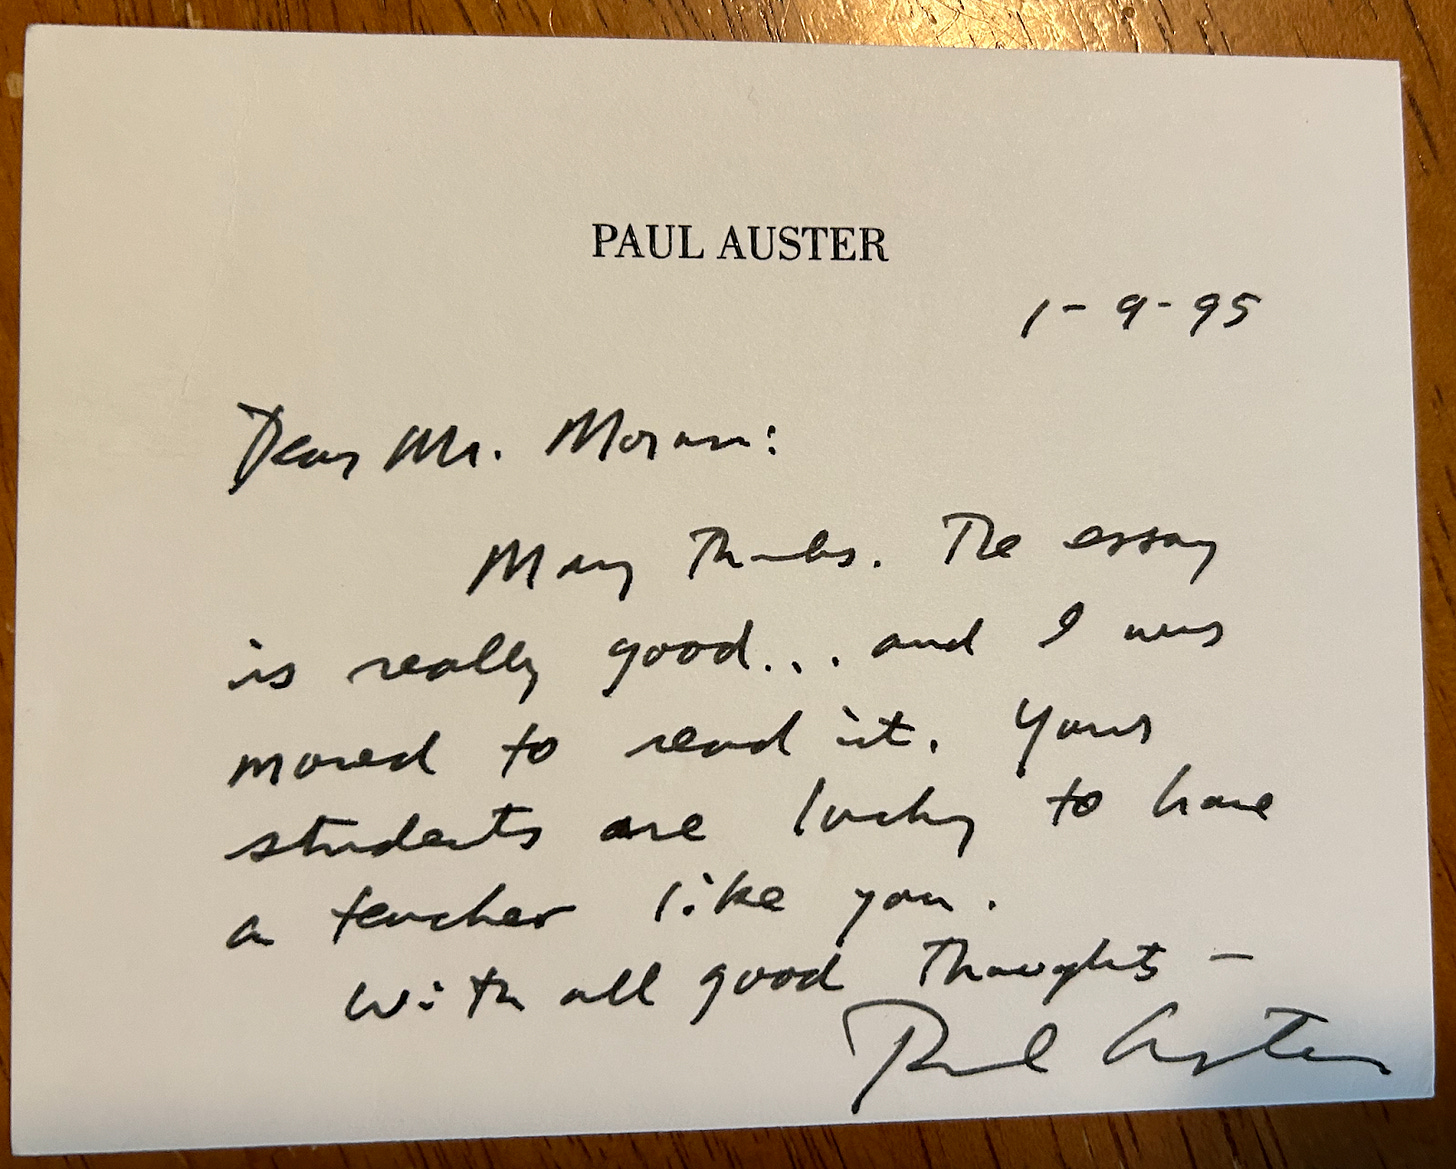 PAUL AUSTER
1-9-95
Dear Mr. Moran:
Many thanks. The essay
is really good... and I was
moved to read it. Your
students are lucky to have
a teacher like you.
With all good thoughts —
Paul Auster